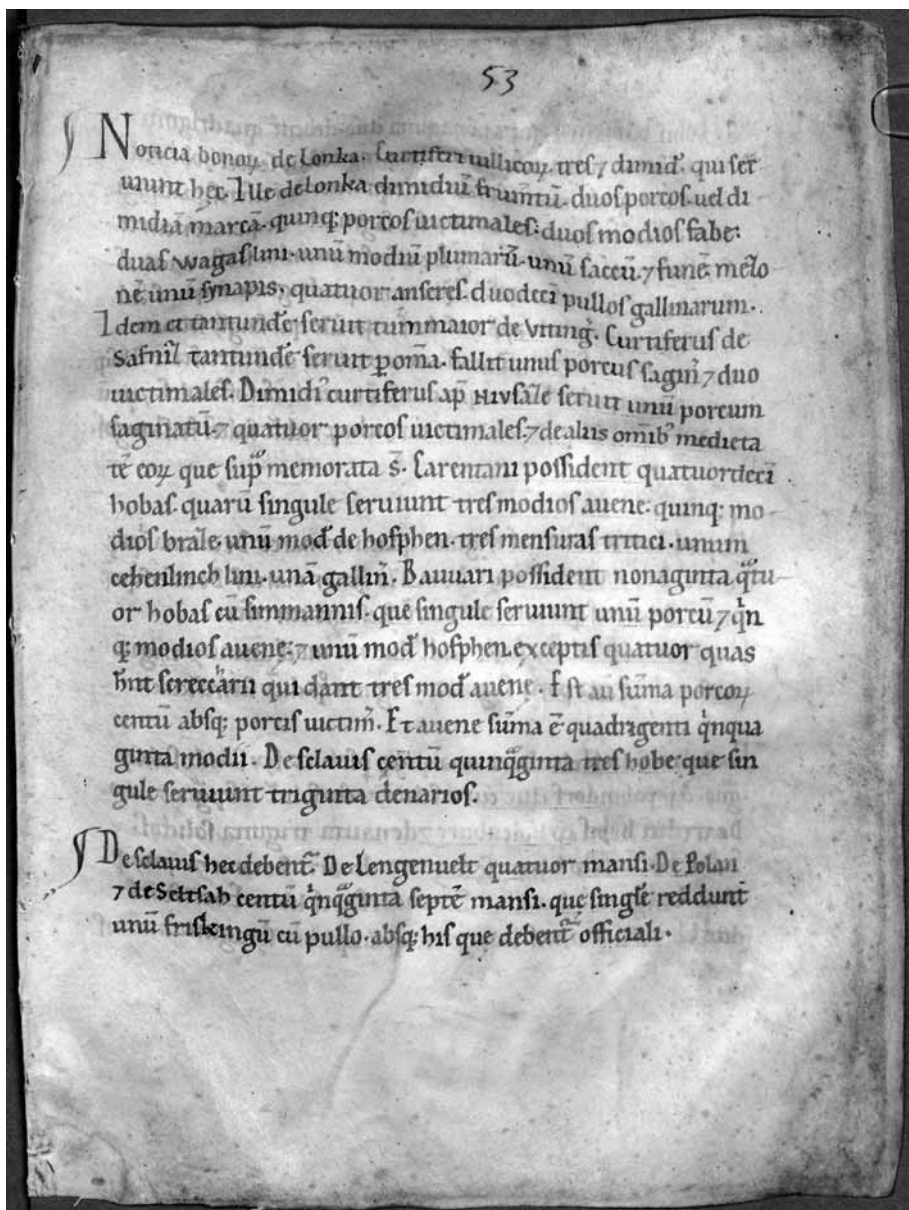 53
Noticia bonoꝝ de Lonka. Curtiferi uillicoꝝ tres ⁊ dimid᷒. qui ser
uiunt hec. Ille de Lonka dimidiũ frum̃tũ. duos porcos. uel di
midiã marcã. quinq; porcos uictimales. duos modios fabe.
duas wagas lini. unũ modiũ plumarũ. unũ saccũ. ⁊ funẽ. melo
nẽ unũ synapis. quatuor anseres. duodecĩ pullos gallinarum.
Idem et tantundẽ seruit maior de
Curtiferus de
Safnił tantundẽ seruit ꝑ om̃a. fallit unus porcus sagiñ ⁊ duo
uictimales. Dimidi᷒ curtiferus ap̃ HIVSALE seruit unũ porcum
saginatũ. ⁊ quatuor porcos uictimales. ⁊ de aliis om̃ib᷒ medieta
tẽ eoꝝ que sup̃ memorata s̃. Carentani possident quatuordecĩ
hobas. quarũ singule seruiunt tres modios auene. quinq; mo
dios brasłe. unũ mod̃ de hosphen. tres mensuras tritici. unum
cehenlinch lini. unã galliñ. Bauuari possident nonaginta qᷓtu
or hobas cũ simmannis. que singule seruiunt unũ porcũ ⁊ qͥn
q; modios auene. ⁊ unũ mod̃ hosphen. exceptis quatuor quas
hñt qui dant tres mod̃ auene. Est aũ sũma porcoꝝ
centũ absq; porcis uictim̃. Et auene sũma ẽ quadringenti qͥnqua
ginta modii. De sclauis centũ quinqᷓginta tres hobe que sin
gule seruiunt triginta denarios.
De sclauis hec debent᷑. De Lengenuelt quatuor mansi. De Polan
⁊ de Seltsah centũ qͥnqᷓginta septẽ mansi. que singłe reddunt
unũ friskingũ cũ pullo. absq; his que debent᷑ officiali.